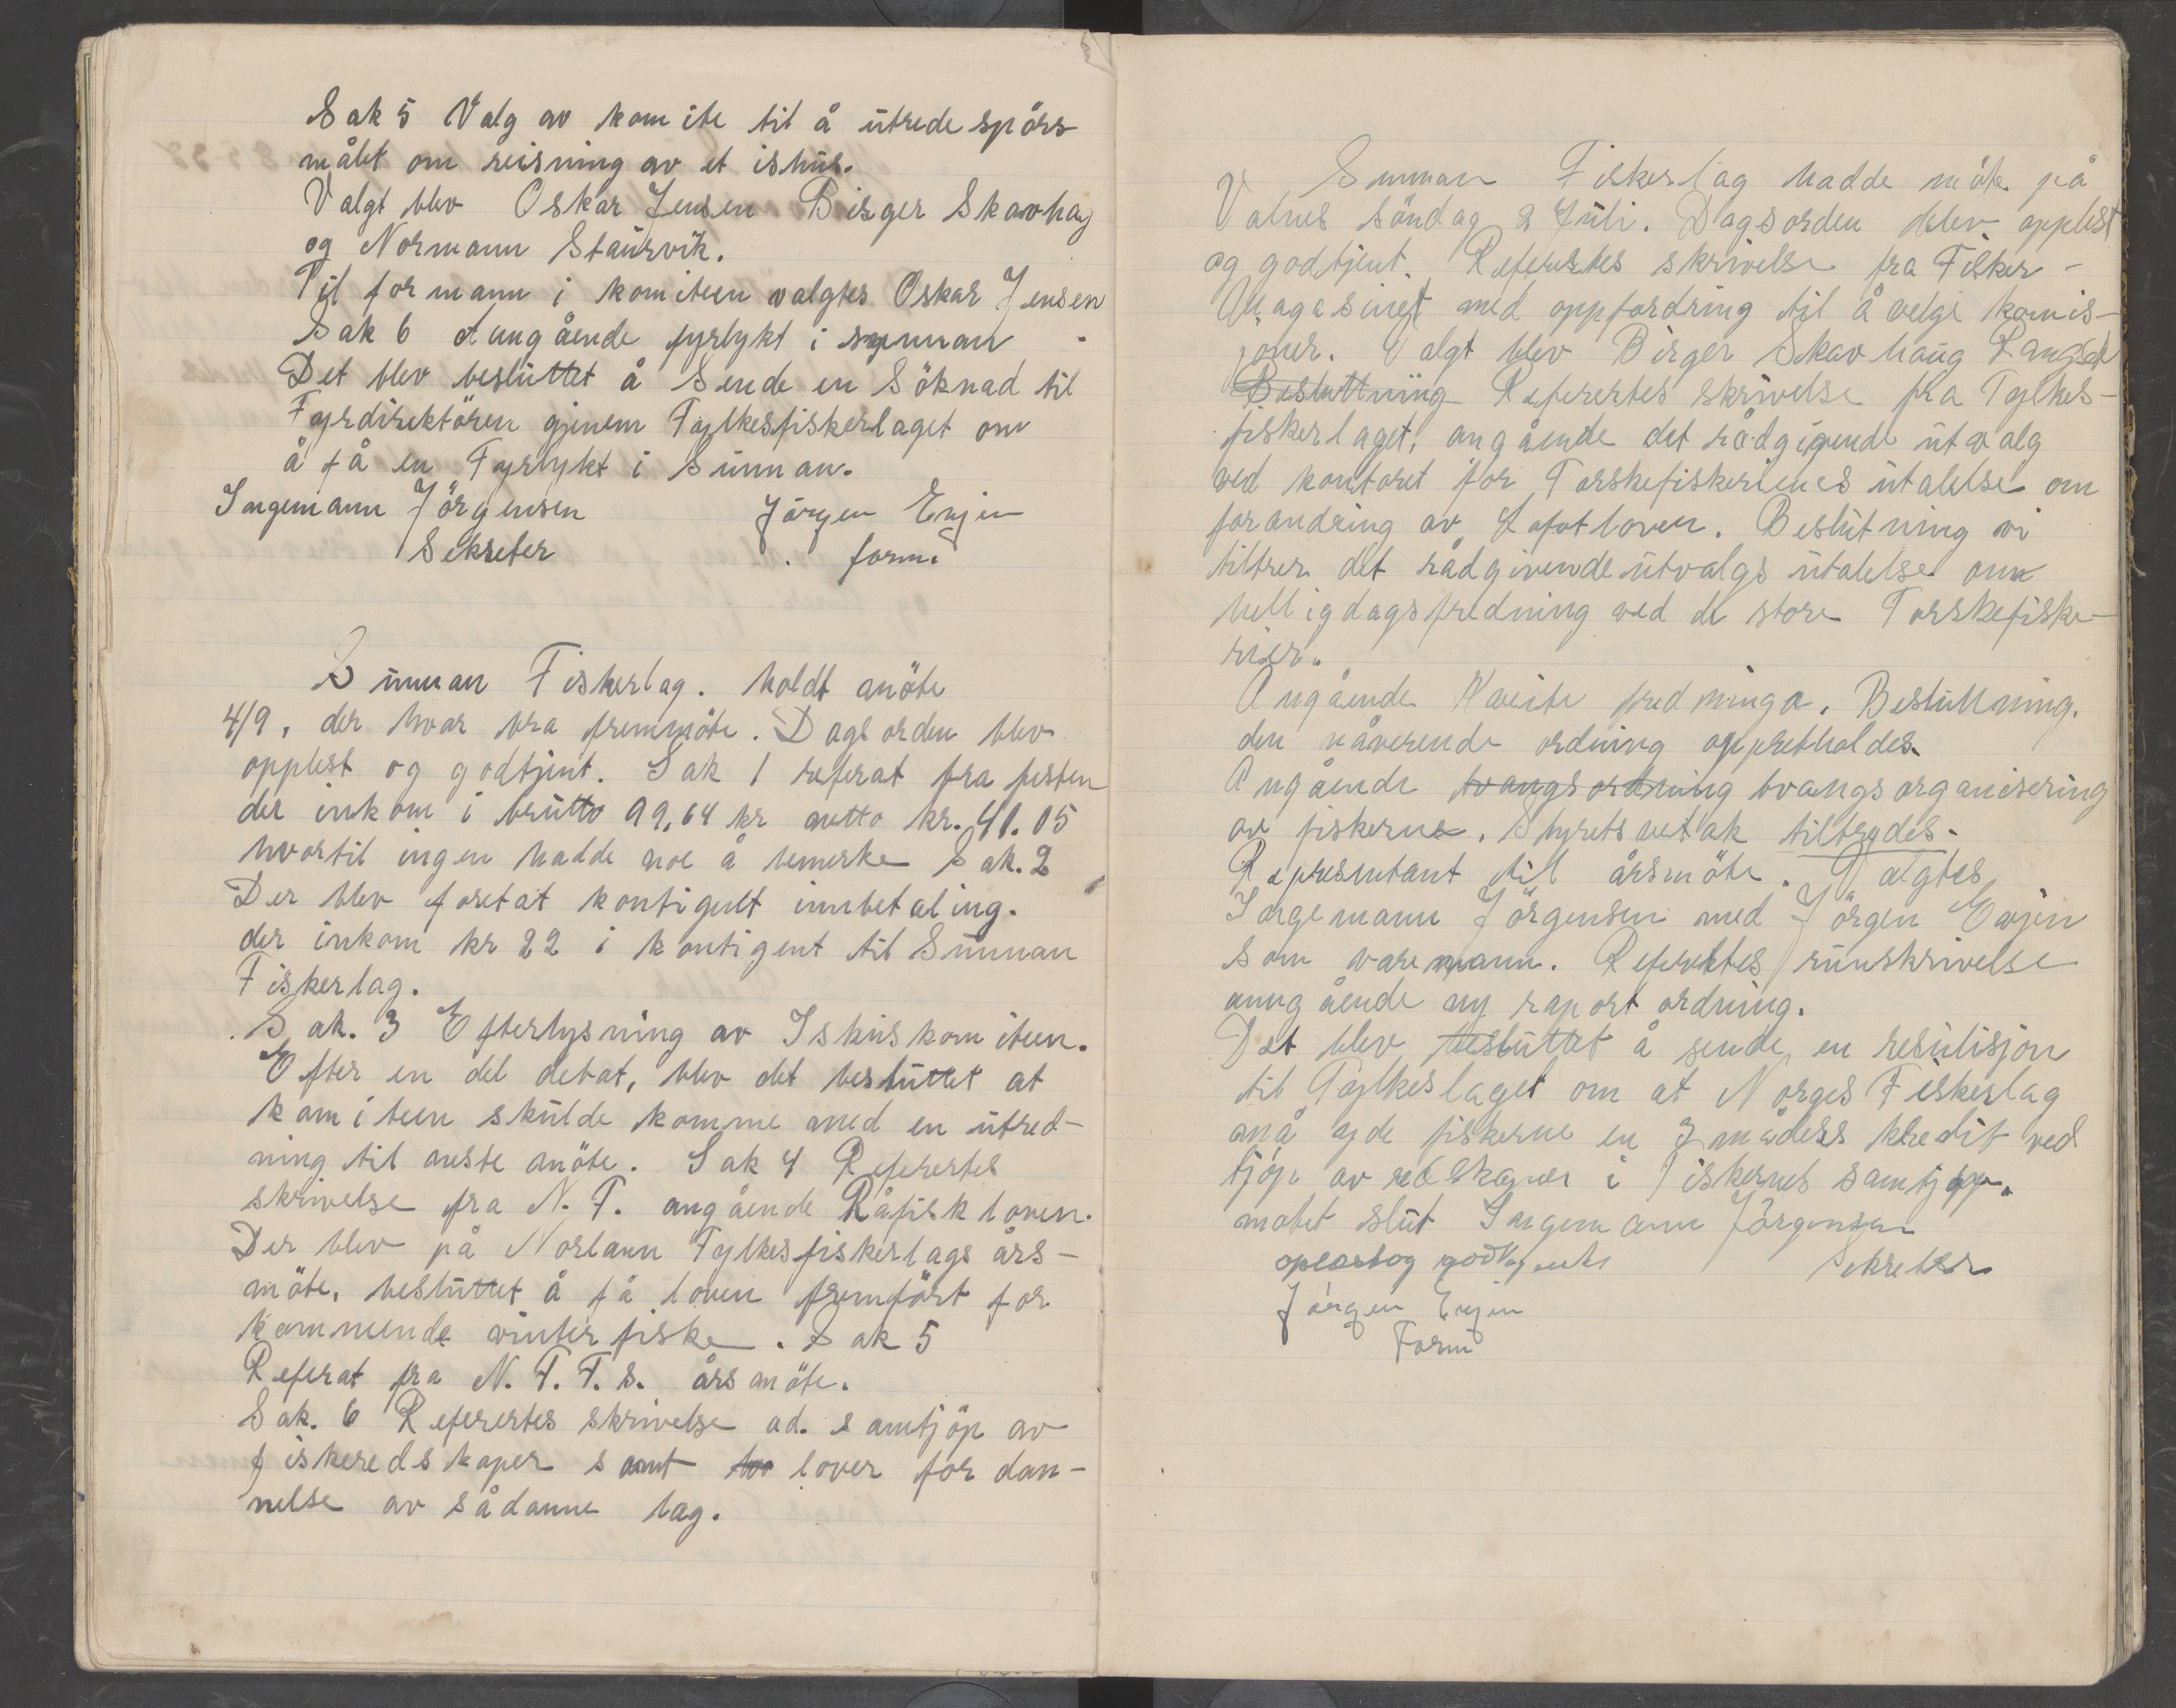 Sak 5 Valg av komite til å utrede spörs
målet om reisning av et ishus.
Valgt blev Oskar Jensen Birger Skavhag
og Normann Staurvik.
Til formann i komiteen valgtes Oskar Jensen
Sak 6 Angående fyrlykt i sunnan
Det blev besluttet å Sende en Söknad til
Fyrdirektören gjenem Fylkesfiskerlaget om
å få en Fyrlykt i Sunnan.
Ingemann Jörgensen Jörgen Evjen
Sekreter form.
Sunnan Fiskerlag. holdt möte
4/9, der hvar bra fremmöte. Dagsorden blev
opplest og godtjent. Sak 1 referat fra festen
der inkom i brutto 99,64 kr netto kr. 41.05
hvortil ingen hadde noe å bemerke Sak. 2
Der blev foretat kontigelt innbetaling.
der inkom kr 22 i kontigent til Sunnan
Fiskerlag.
Sak. 3 Efterlysning av Ishuskomiteen.
Efter en del debat, blev det besluttet at
komiteen skulde komme med en utred-
ning til neste möte. Sak 4 Referertes
skrivelse fra N. F. angående Råfiskloven.
Der blev på Norlann Fylkesfiskerlags års-
möte, besluttet å få loven fremfört for
kommende vinterfiske. Sak 5
Referat fra N. F. F. s. årsmöte.
Sak. 6 Referertes skrivelse ad. samtjöp av
fiskeredskaper samt lov lover for dan-
nelse av sådanne lag.
Sunnan Fiskerlag hadde möte på
Valnes söndag 2 Juli. Dagsorden blev opplest
og godtjent. Refererstes skrivelse fra Fisker-
Magasinet med oppfordring til å velge komis-
joner. Valgt blev Birger Skavhaug Langset
Besluttning Referertes skrivelse fra Fylkes-
fiskerlaget, angående det rådgivende utvalg
ved kontoret for Torskefiskerienes utalelse om
forandring av Lofotloven. Beslutning vi
tiltrer det rådgivende utvalgs utalelse om
helligdagsfredning ved de store Torskefiske-
rier.
Angående Kveite fredninga. Besluttning.
den nåverende ordning oppretholdes.
Angående tvangsordning tvangsorganisering
av fiskerne. Styrets vetak tiltredes.
Representant til årsmöte. Valgtes
Ingemann Jörgensen med Jörgen Evjen
som varemann. Refertes runskrivelse
anngående ny raport ordning.
Det blev besluttet å sende en resulisjon
til Fylkeslaget om at Norges Fiskerlag
må yde fiskerne en 3 måders kredit ved
tjöp av redskaper i Fiskernes samtjöp.
motet slut Ingemann Jörgensen
opleest og godkjent Sekreter
Jörgen Evjen
Form